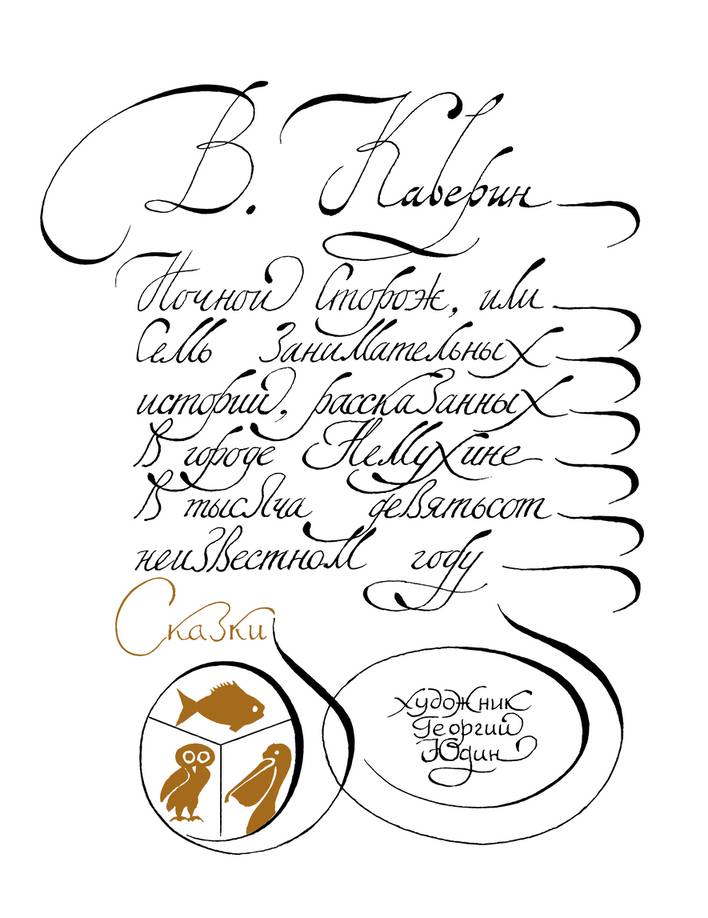 В. Каверин
Ночной Сторож, или
Семь Занимательных
историй, рассказанных
в городе Немухине
в тысяча девятьсот
неизвестном году
Сказки
художник
Георгий
Юдин